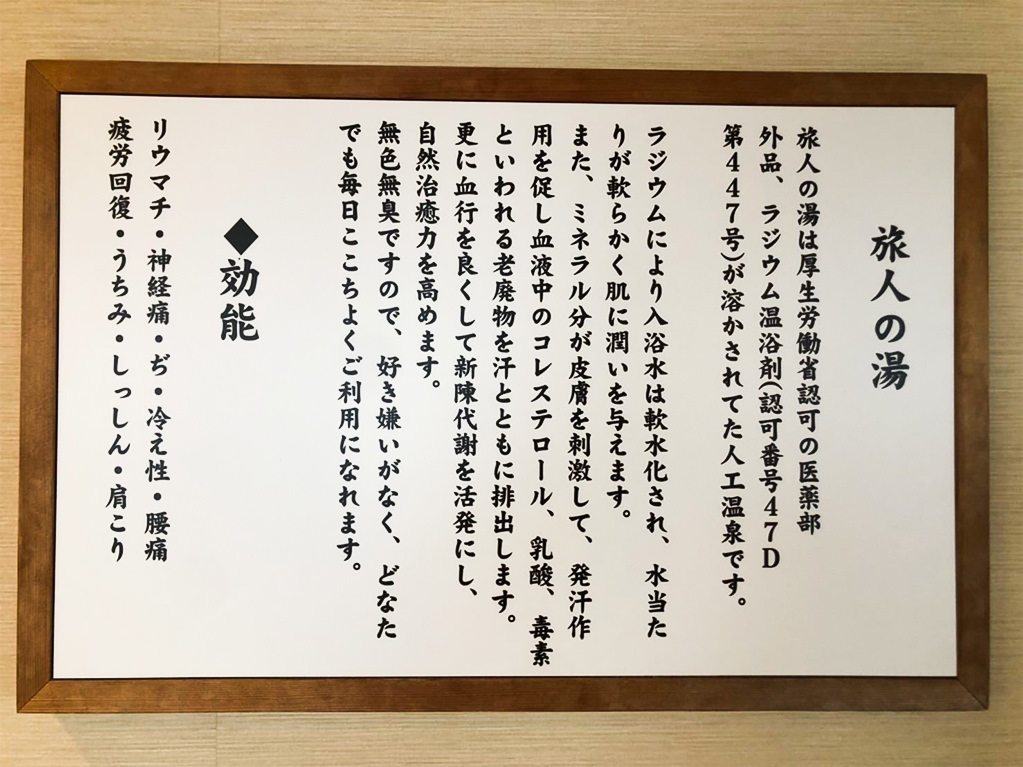 旅人の湯
旅人の湯は厚生労働省認可の医薬部
外品、ラジウム温浴剤(認可番号47D
第447号)が溶かされてた人工温泉です。
ラジウムにより入浴水は軟水化され、水当た
りが軟らかく肌に潤いを与えます。
また、ミネラル分が皮膚を刺激して、発汗作
用を促し血液中のコレステロール、乳酸、毒素
といわれる老廃物を汗とともに排出します。
更に血行を良くして新陳代謝を活発にし、
自然治癒力を高めます。
無色無臭ですので、好き嫌いがなく、どなた
でも毎日ここちよくご利用になれます。
◆効能
リウマチ・神経痛・ぢ・冷え性・腰痛
疲労回復・うちみ・しっしん・肩こり